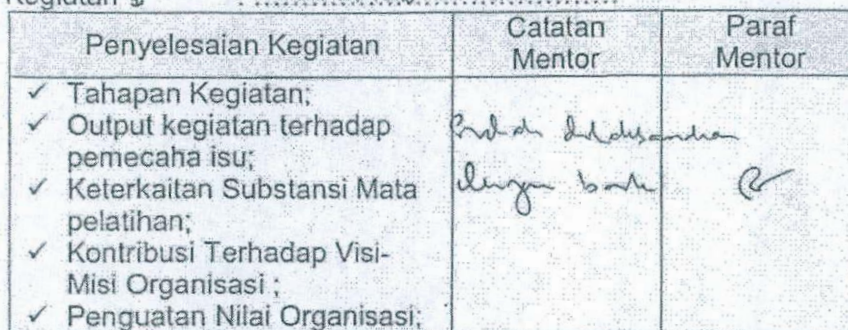 Kegiatan
Penyelesaian Kegiatan
Catatan
Mentor
Paraf
Mentor
✓ Tahapan Kegiatan;
✓ Output kegiatan terhadap
pemecaha isu;
✓ Keterkaitan Substansi Mata
pelatihan;
✓ Kontribusi Terhadap Visi-
Misi Organisasi ;
✓ Penguatan Nilai Organisasi;
dengan baik